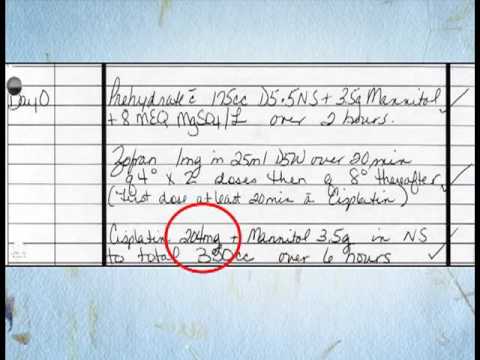 Day 0
Prehydrate c̄ 175cc D5.5NS + 3.5g Mannitol
+ 8 mEQ MgSO4/L over 2 hours.
Zofran 1mg in 25ml D5W over 20min
q4° x 2 doses then q 8° thereafter
(First dose at least 20min ā Cisplatin)
Cisplatin 204mg + Mannitol 3.5g in NS
to total 350cc over 6 hours